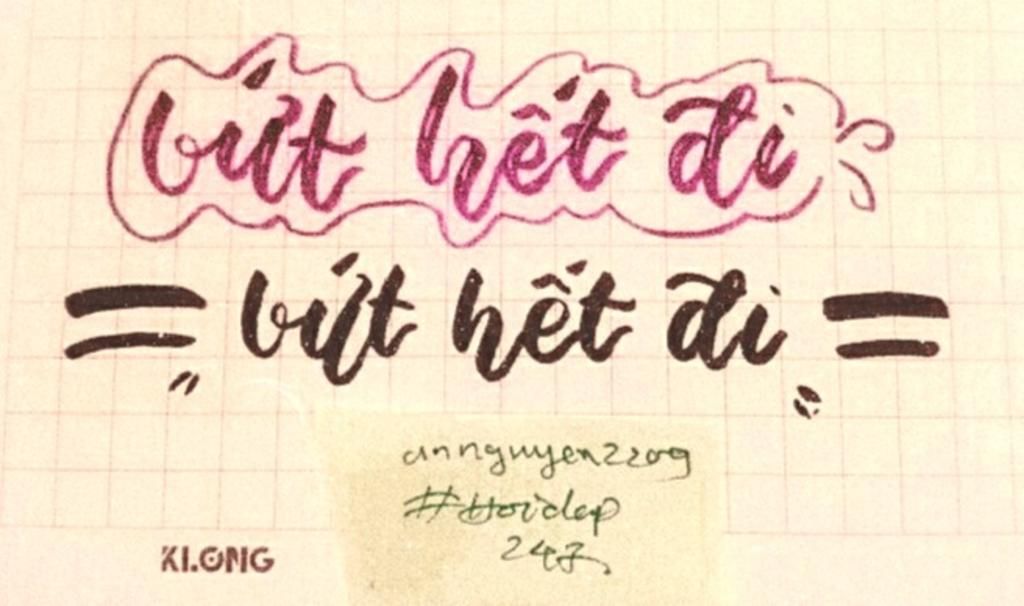 bứt hết đi
bứt hết đi
annguyen2209
#Hoidep
247
KLONG